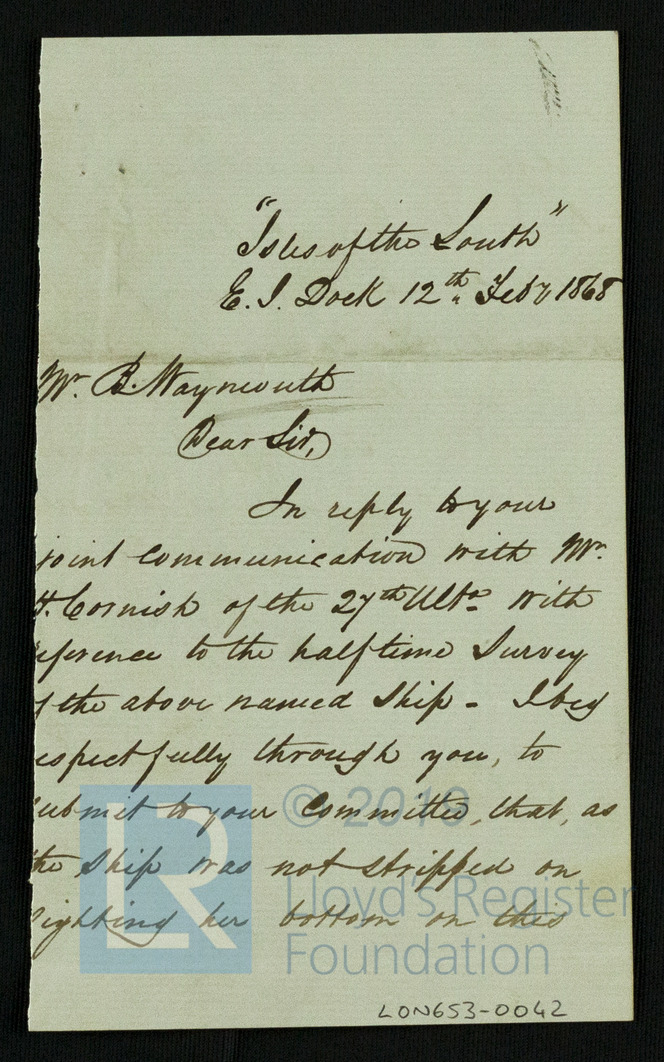 "Isles of the South"
E. I. Dock 12th. Feby 1868
Mr. B. Waymouth
Dear Sir,
In reply to your
joint communication with Mr.
H. Cornish of the 27th Ulto. with
eference to the half time Survey
f the above named Ship - I beg
espectfully through you, to
submit to your Committee, that, as
the Ship was not stripped on
sighting her bottom on this
LR
© 2019
Lloyd's Register
Foundation
LON653-0042